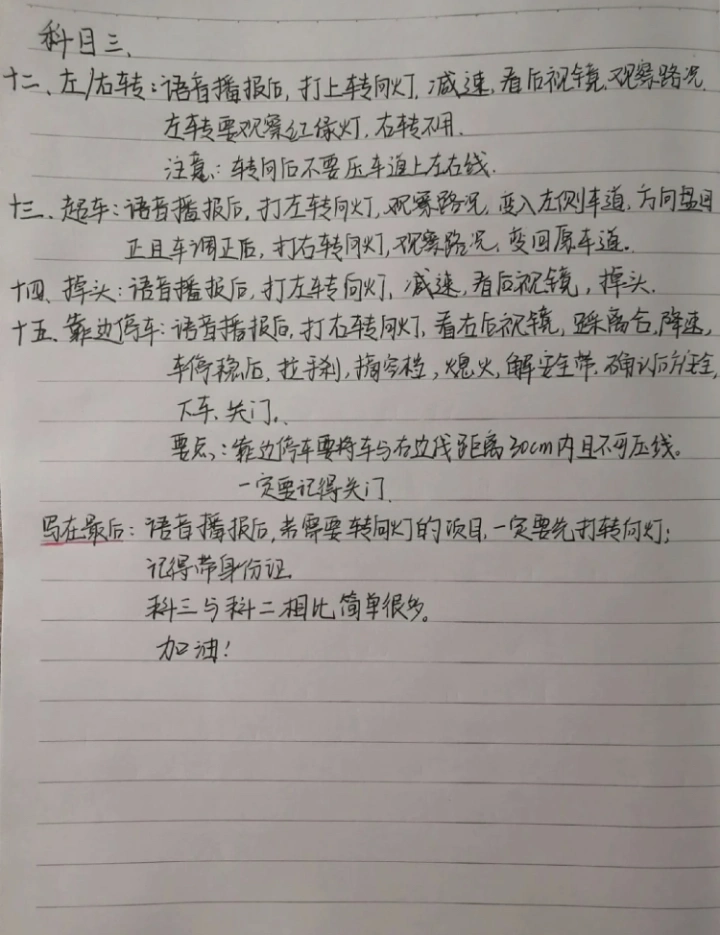 科目三、
十二、左/右转：语音播报后，打上转向灯，减速，看后视镜，观察路况.
左转要观察红绿灯，右转不用.
注意：转向后不要压车道上左右线.
十三、超车：语音播报后，打左转向灯，观察路况，变入左侧车道，方向盘回
正且车调正后，打右转向灯，观察路况，变回原车道。
十四、掉头：语音播报后，打左转向灯，减速，看后视镜，掉头.
十五、靠边停车：语音播报后，打右转向灯，看右后视镜，踩离合，降速，
车停稳后，拉手刹，摘空档，熄火，解安全带，确认后方安全，
下车、关门。
要点：靠边停车要将车与右边线距离30cm内且不可压线。
一定要记得关门.
写在最后：语音播报后，若需要转向灯的项目，一定要先打转向灯；
记得带身份证.
科三与科二相比简单很多。
加油！